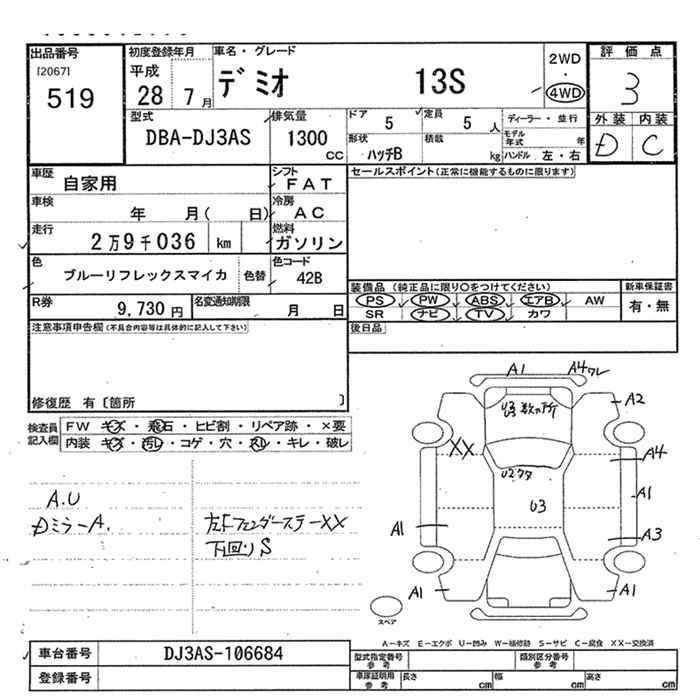 出品番号 初度登録年月 車名・グレード 評価点
[2067] 平成 2WD
519 28 7月 デミオ 13S ・ 3
4WD
型式 排気量 ドア 定員 ディーラー・並行 外装 内装
DBA-DJ3AS 1300 CC 5 5人 モデル年式 年 D C
形状 積載
ハッチB kg ハンドル 左・右
車歴 シフト セールスポイント(正常に機能するものに限ります)
自家用 FAT
車検 冷房
年 月( 日) AC
走行 燃料
2万9千036 km ガソリン
色 色コード
ブルーリフレックスマイカ 色替 42B 装備品 (純正品に限り○をつけてください) 新車保証書
PS PW ABS エアB AW 有・無
R券 名変通知期限 SR ナビ TV カワ
9,730円 月 日
注意事項申告欄(不具合内容等は具体的に記入して下さい) 後日品
修復歴 有〔箇所 〕
検査員 FW キズ・飛石・ヒビ割・リペア跡・×要
記入欄 内装 キズ・汚れ・コゲ・穴・スレ・キレ・破レ
A1 A4ワレ
U3 A2
XX A4
U2 A1
U3
A.U
Dミラー A. 左Fフェンダーステー XX
下回りS
A1 A3
A1 A1
スペア
A-キズ E-エクボ U-凹み W-補修跡 S-サビ C-腐食 XX-交換済
車台番号 DJ3AS-106684 型式指定番号 参考 類別区分番号 参考
登録番号 車庫証明用 参考 長さ cm 幅 cm 高さ cm